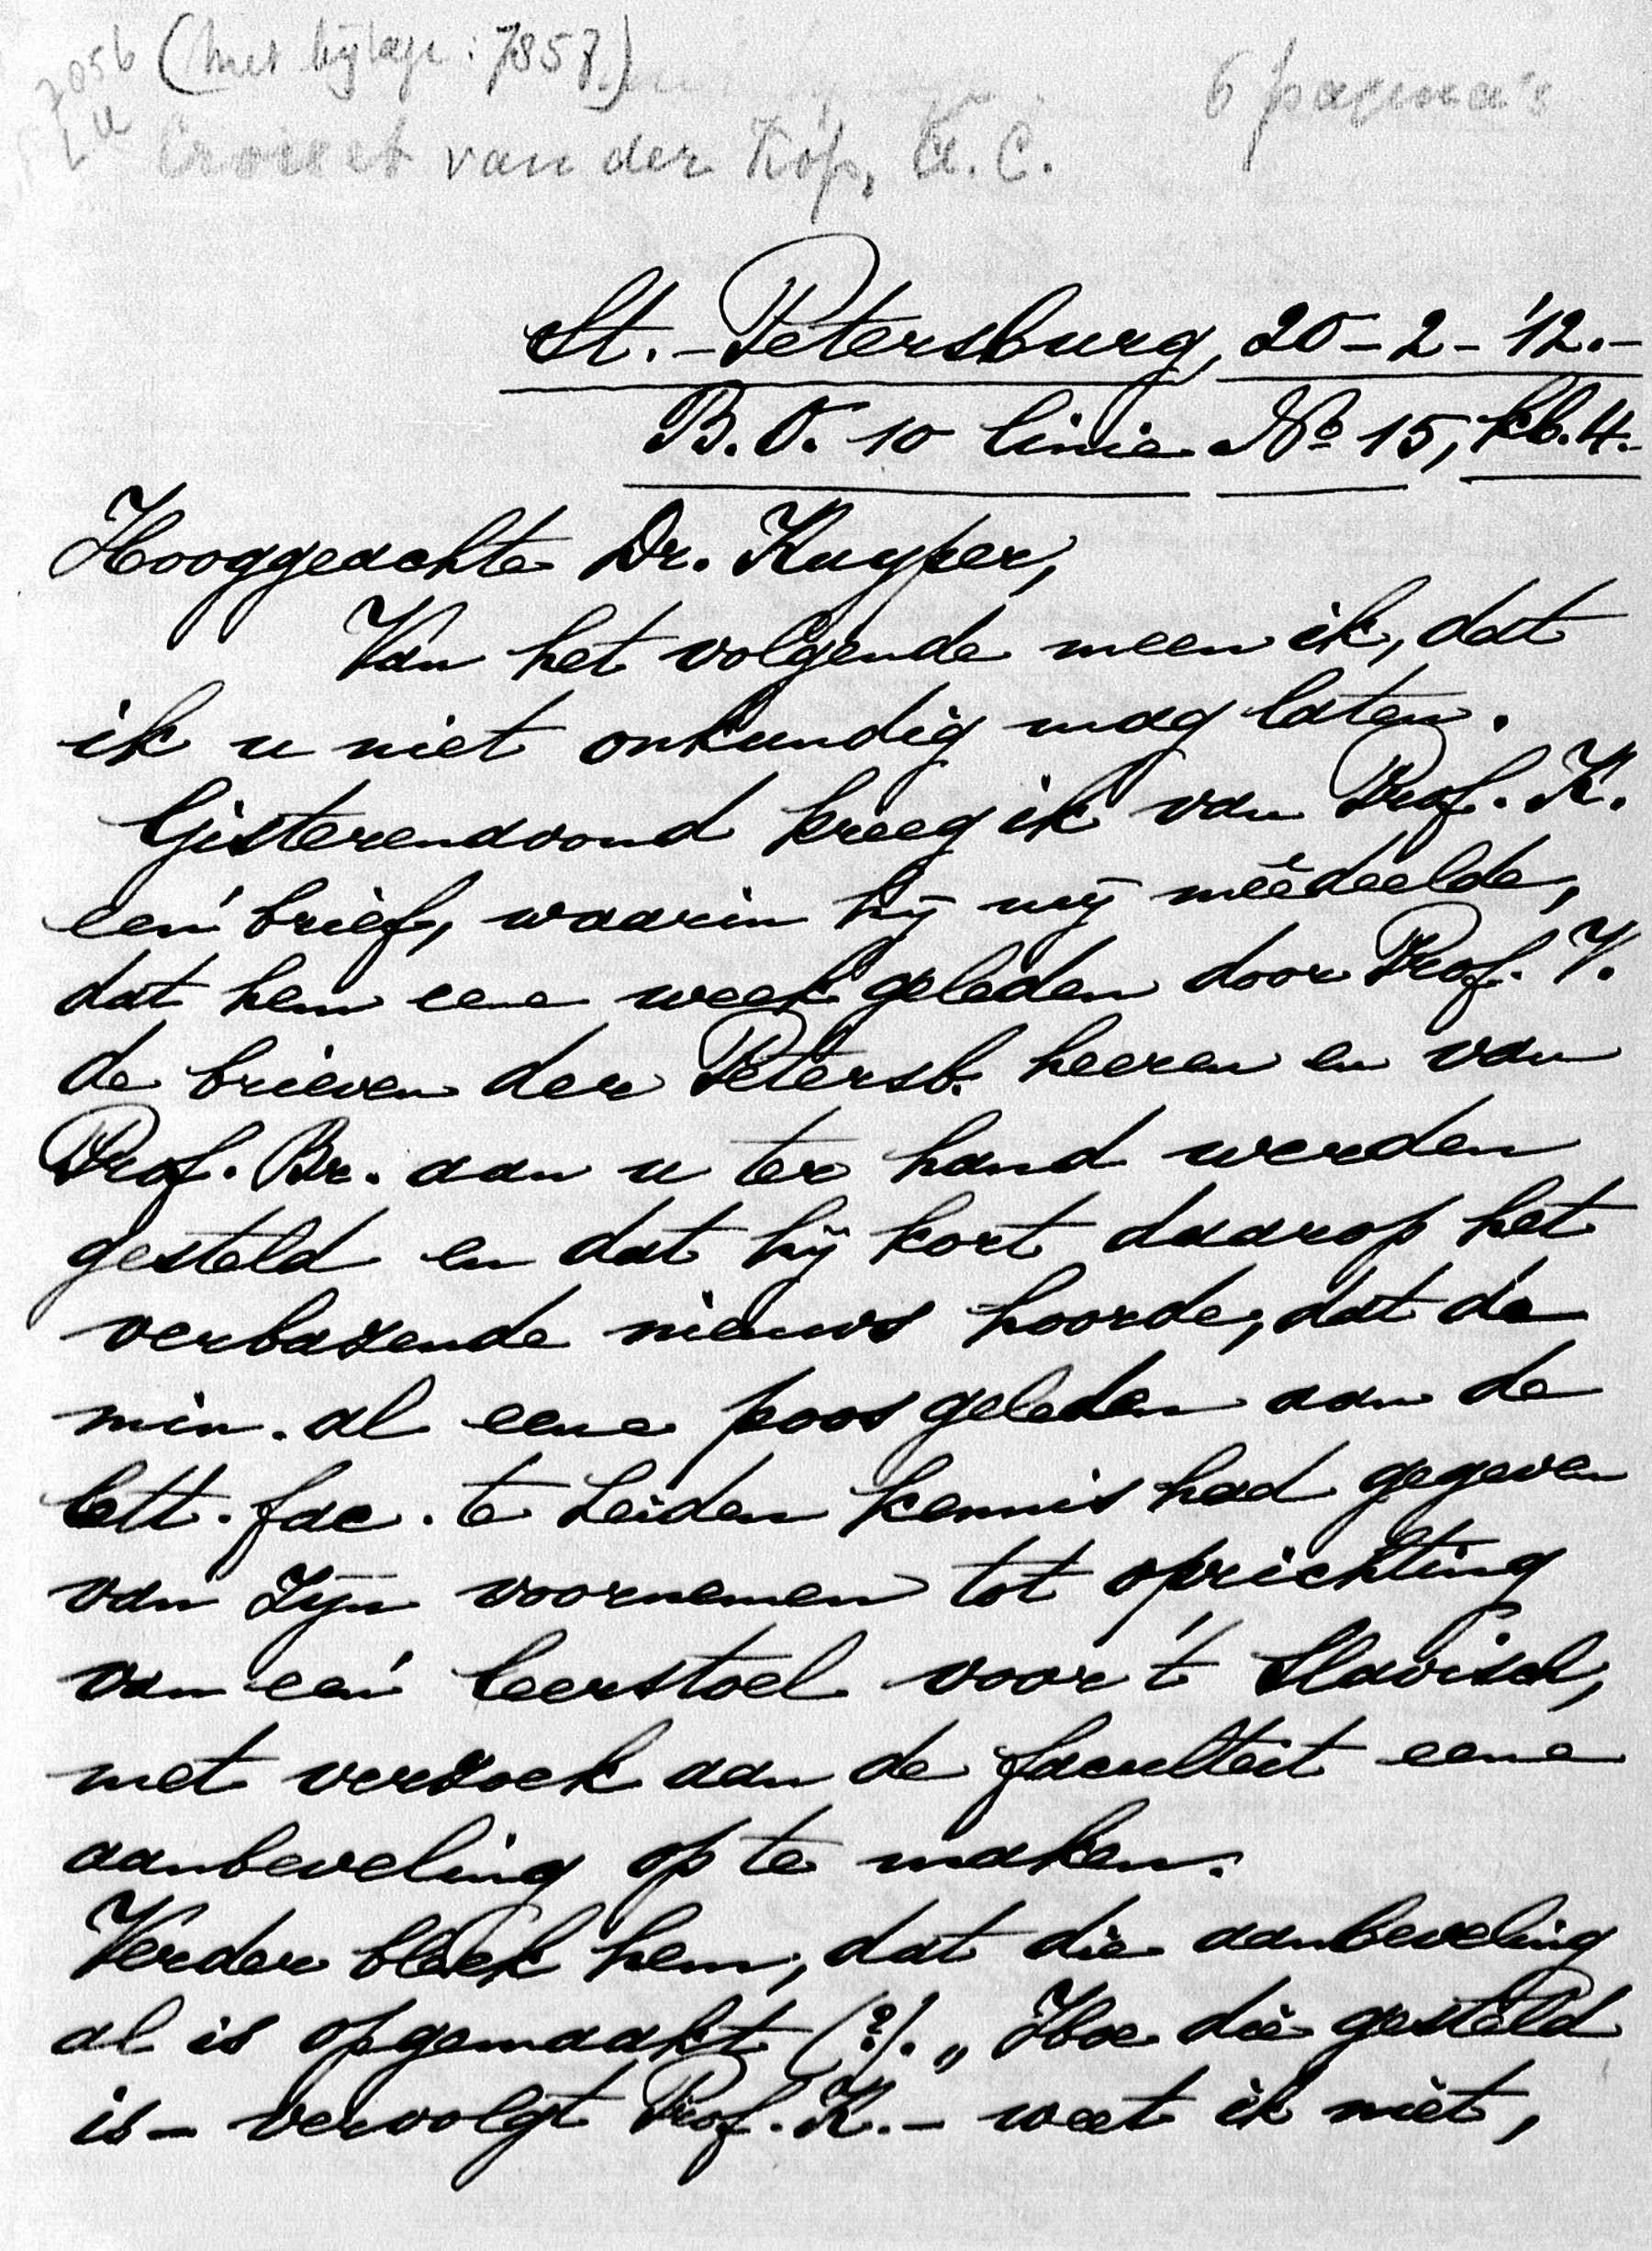 (met bijlage: 7857)
6 pagina's
Croiset van der Kop, A. C.
St.-Petersburg, 20-2-'12.-
B.O. 10 linie No 15, kb. 4.-
Hooggeachte Dr. Kuyper,
Van het volgende meen ik, dat
ik u niet onkundig mag laten.
Gisterenavond kreeg ik van Prof. K.
een brief, waarin hij mij meêdeelde,
dat hem eene week geleden door Prof. V.
de brieven der Petersb. heeren en van
Prof. Br. aan u ter hand werden
gesteld en dat hij kort daarop het
verbazende nieuws hoorde, dat de
min. al eene poos geleden aan de
lett. fac. te Leiden kennis had gegeven
van zijn voornemen tot oprichting
van een leerstoel voor 't Slavisch,
met verzoek aan de faculteit eene
aanbeveling op te maken.
Verder bleek hem, dat die aanbeveling
al is opgemaakt (?). „Hoe die gesteld
is - vervolgt Prof. K. - weet ik niet,